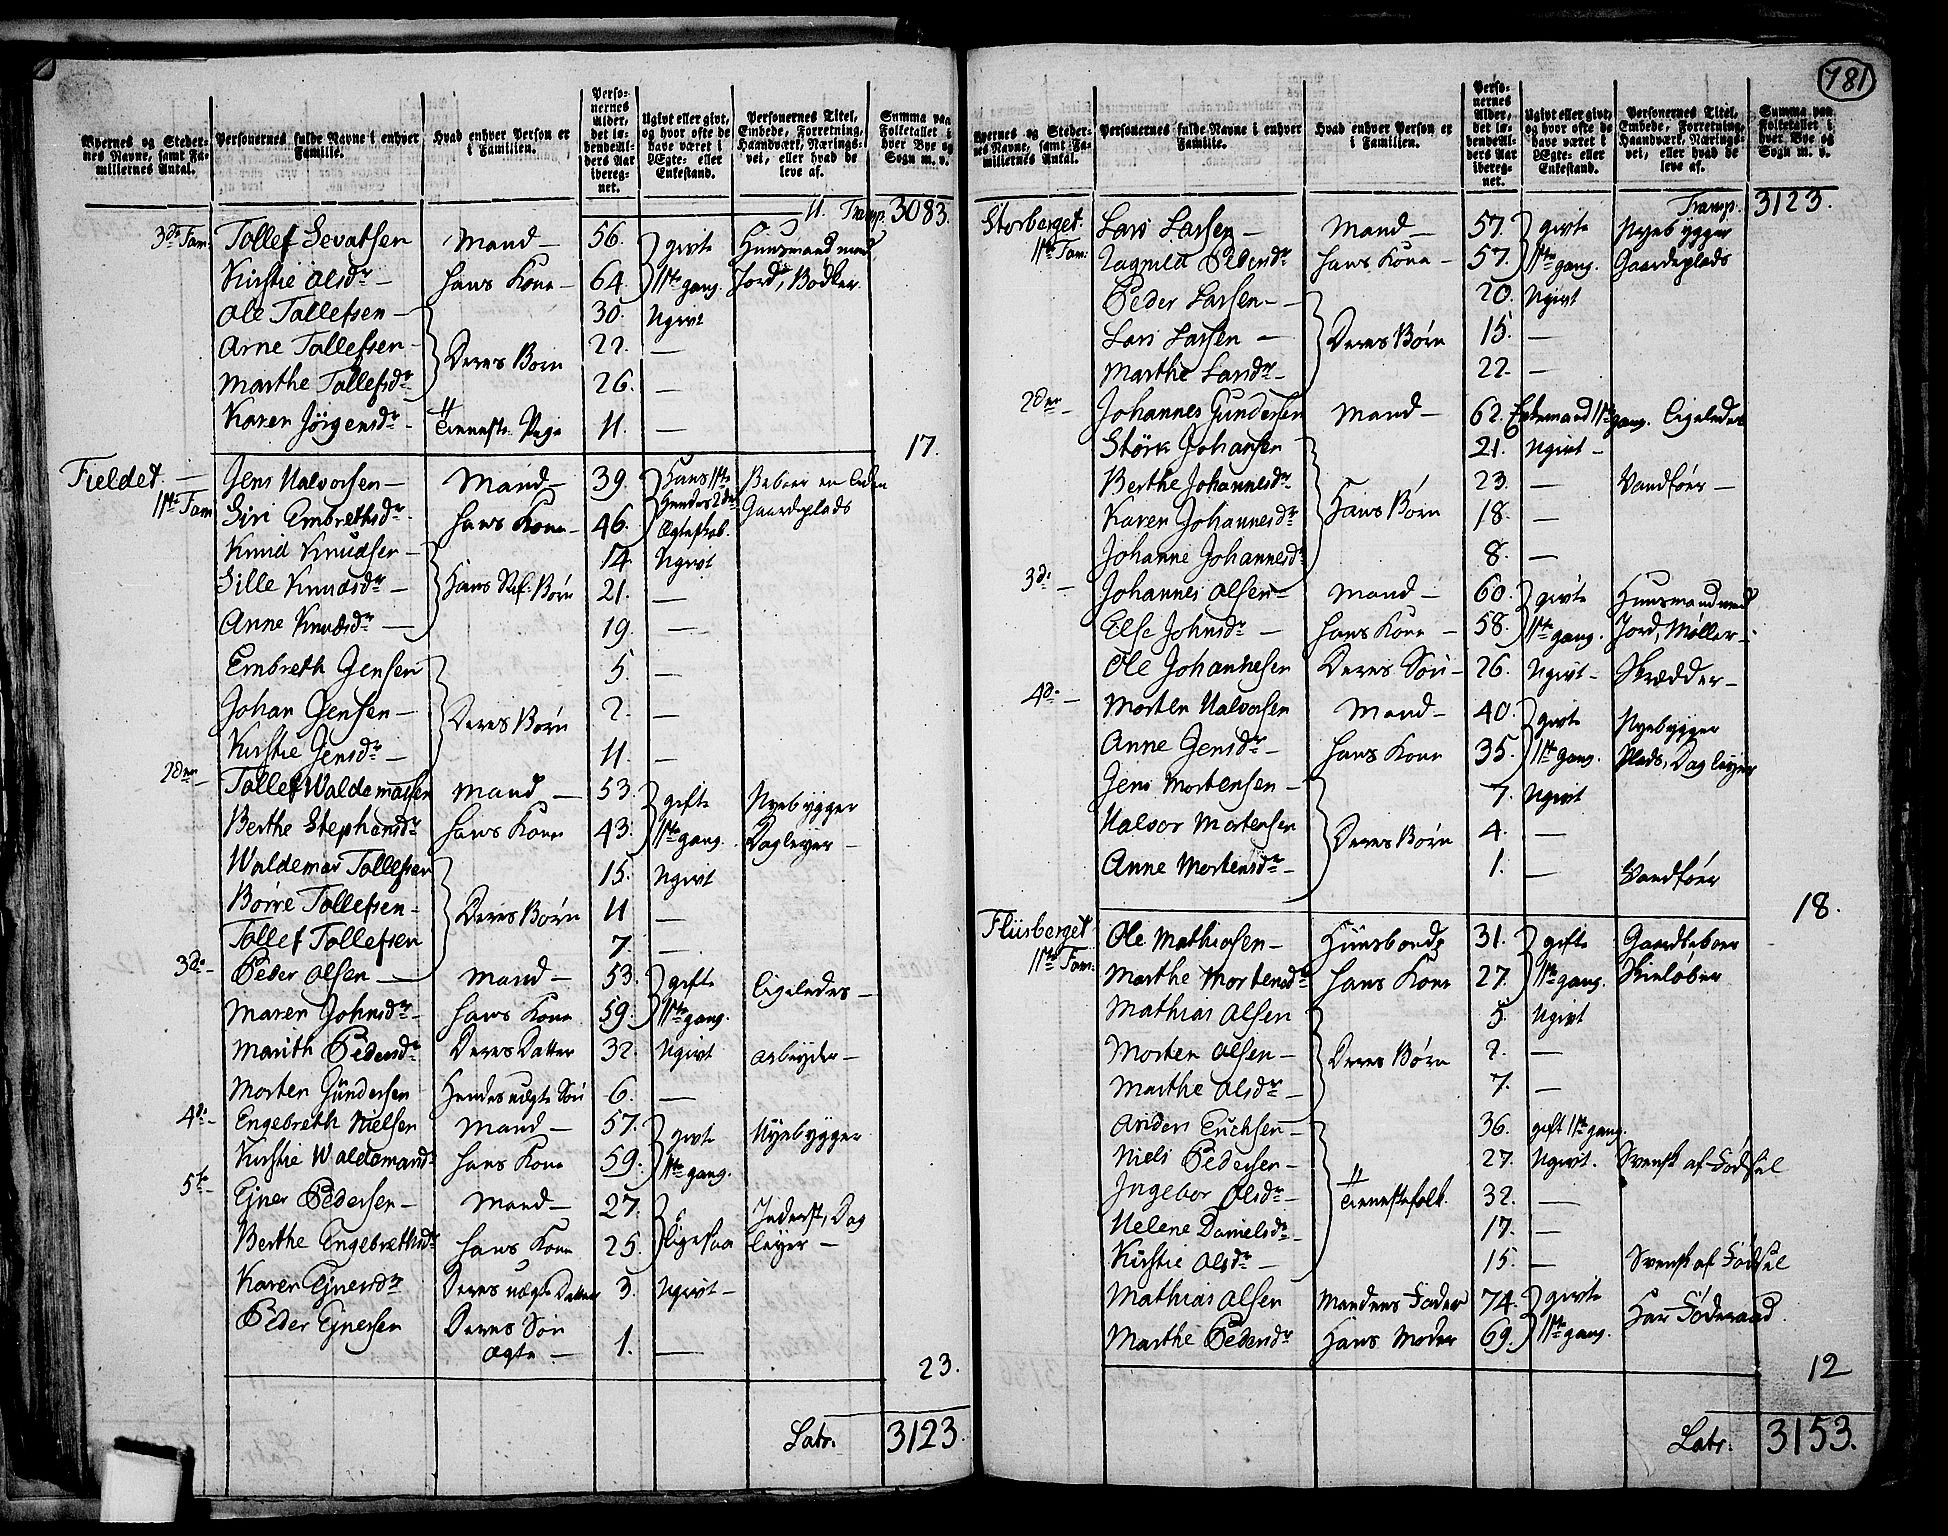 181
Byernes og Steder-
nes Navne, samt Fa-
miliernes Antal.
Personernes fulde Navne i enhver
Familie.
Hvad enhver Person er
i Familien.
Perso-
nernes
Alder,
det lø-
bende Al-
ders Aar
ibereg-
net.
Ugivt eller givt,
og hvor ofte de
have været i
Ægte- eller
Enkestand.
Personernes Titel,
Embede, Forretning,
Haandværk, Nærings-
vei, eller hvad de
leve af.
Summa paa
Folketallet i
hver Bye og
Sogn m. v.
Transp. 3083.
3de Fam. Tollef Sevatsen Mand — 56. givte Huusmand med
Kirstie Olsdr — Hans Kone — 64. 1ste gang. Jord, Bødker
Ole Tollefsen — 30. Ugivt
Arne Tollefsen — Deres Børn 22. —
Marthe Tollefsdr 26. —
Karen Jörgensdr — Tienneste Pige 11. —
17.
Fieldet — Jens Halvorsen — Mand — 39. Hans 1ste Beboer en liden
1ste Fam Siri Embrethsdr — Hans Kone — 46. Hendes 2det Gaardeplads
Ægteskab.
Knud Knudsen — 14 Ugivt
Sille Knudsdr — Hans Stif: Børn 21. —
Anne Knudsdr — 19. —
Embreth Jensen 5 —
Johan Jensen — Deres Børn 2. —
Kirstie Jensdr — 11 —
2den — Tollef Waldemarsen Mand — 53. gifte Nyebygger
Berthe Stephansdr Hans Kone 43. 1ste gang. Dagleyer —
Waldemar Tollefsen 15. Ugivt
Börre Tollefsen — Deres Børn 11 —
Tollef Tollefsen 7. —
3de — Peder Olsen — Mand — 53. gifte Ligeledes —
Maren Johnsdr — Hans Kone 59. 1ste gang.
Marith Pedersdr Deres Datter 32. Ugivt arbeyder —
Morten Gundersen Hendes uægte Sön 6. —
4de — Engebreth Nielsen Mand — 57. givte Nyebygger
Kirstie Waldemarsdr Hans Kone 59. 1ste gang.
5te — Ejner Pedersen — Mand — 27. Ligesaa Inderst, Dag
Berthe Engebrethsdr Hans Kone 25. leyer —
Karen Ejnersdr Deres uægte Datter 3. Ugivt —
Peder Ejnersen Deres Sön
Ægte — 1. —
23.
Latr. 3123.
Byernes og Steder-
nes Navne, samt Fa-
miliernes Antal.
Personernes fulde Navne i enhver
Familie.
Hvad enhver Person er
i Familien.
Perso-
nernes
Alder,
det lø-
bende Al-
ders Aar
ibereg-
net.
Ugivt eller givt,
og hvor ofte de
have været i
Ægte- eller
Enkestand.
Personernes Titel,
Embede, Forretning,
Haandværk, Nærings-
vei, eller hvad de
leve af.
Summa paa
Folketallet i
hver Bye og
Sogn m. v.
Transp. 3123.
Storberget. Lars Larsen — Mand — 57. givte Nyebygger
1ste Fam: Ragnild Pedersdr Hans Kone — 57. 1ste gang. Gaardeplads
Peder Larsen — 20. Ugivt
Lars Larsen — Deres Børn 15. —
Marthe Larsdr — 22. —
2den — Johannes Gundersen Mand — 62. Enkemand 1ste gang. Ligeledes
Störk Johansen 21. Ugivt —
Berthe Johannesdr 23. — Vandför —
Karen Johannesdr Hans Børn 18. —
Johanne Johannesdr 8. —
3de — Johannes Olsen — Mand — 60. givte Huusmand med
Else Johnsdr — Hans Kone — 58. 1ste gang. Jord, Møller —
Ole Johannesen Deres Sön — 26. Ugivt — Skrædder —
4de — Morten Halvorsen Mand — 40. givte Nyebygger
Anne Jensdr — Hans Kone 35. 1ste gang. Plads, Dagleyer
Jens Mortensen — 7. Ugivt
Halvor Mortensen Deres Børn 4. —
Anne Mortensdr — 1. — Vandför
18.
Fliisberget Ole Mathiasen — Huusbonde 31. gifte Gaardbeboer
1ste Fam: Marthe Mortensdr Hans Kone 27. 1ste gang. Skieløber
Mathias Olsen 5. Ugivt
Morten Olsen — Deres Børn 2. —
Marthe Olsdr — 7. —
Anders Erichsen — 36. gift 1ste gang.
Niels Pedersen — 27. Ugivt. Svensk af Fødsel
Ingebor Olsdr — Tiennestefolk 32. —
Helene Danielsdr — 17. —
Kirstie Olsdr — 15. — Svensk af Fødsel
Mathias Olsen Mandens Fader 74. givte Har Föderaad.
Marthe Pedersdr Hans Moder 69. 1ste gang.
12
Latr. 3153.